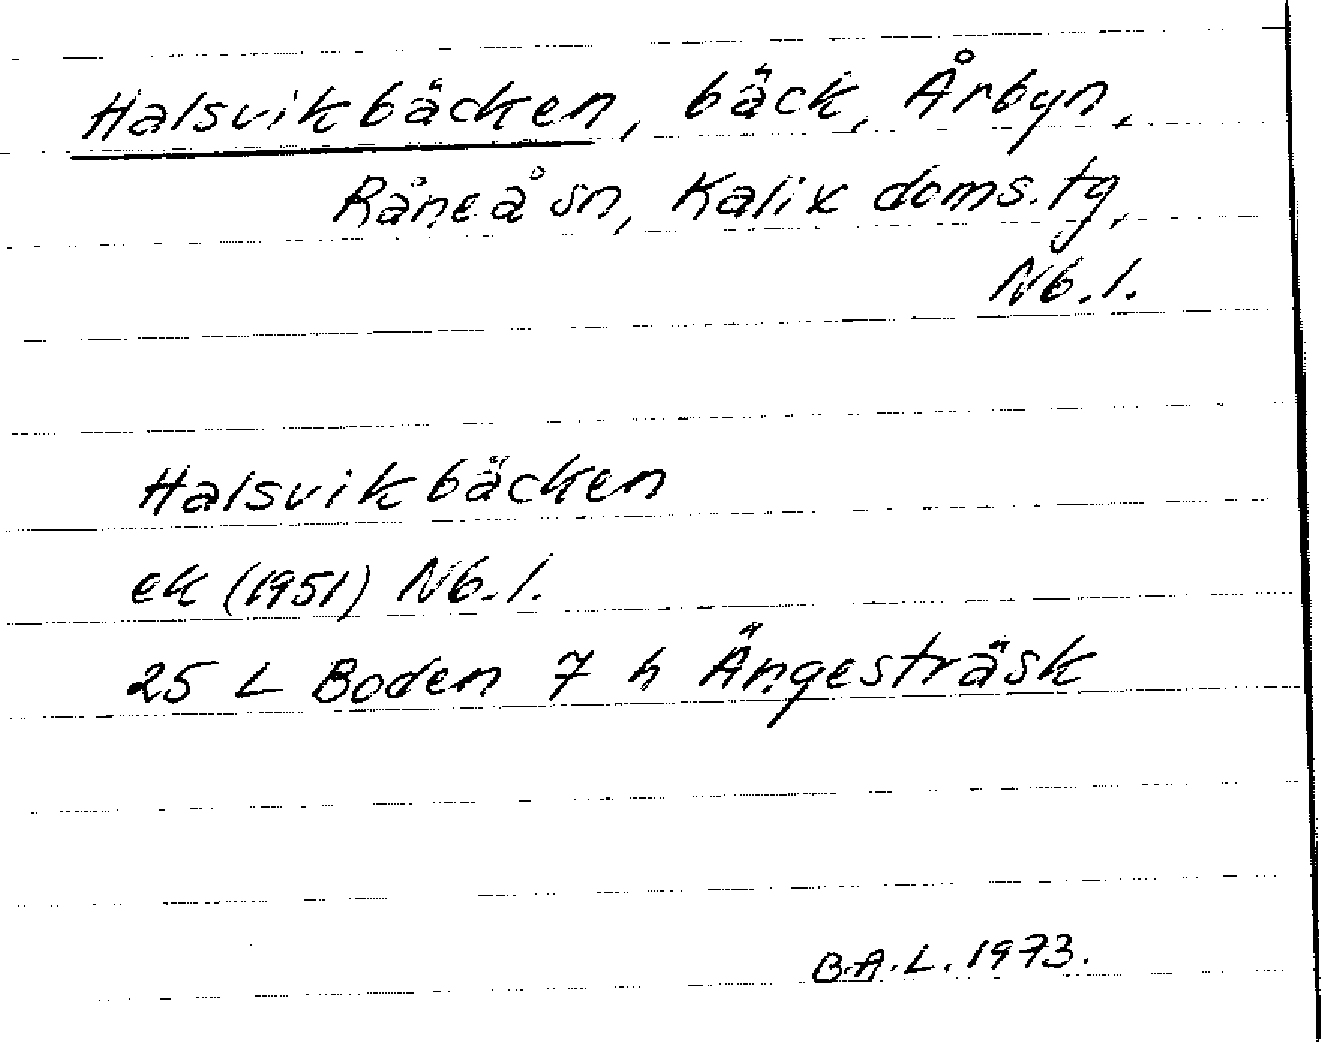 Halsvikbäcken, bäck, Årbyn,
Råneå sn, Kalix doms.tg,
Nb.l.
Halsvikbäcken
ek (1951) Nb.l.
25 L Boden 7 h Ängesträsk
B.A.L. 1973.